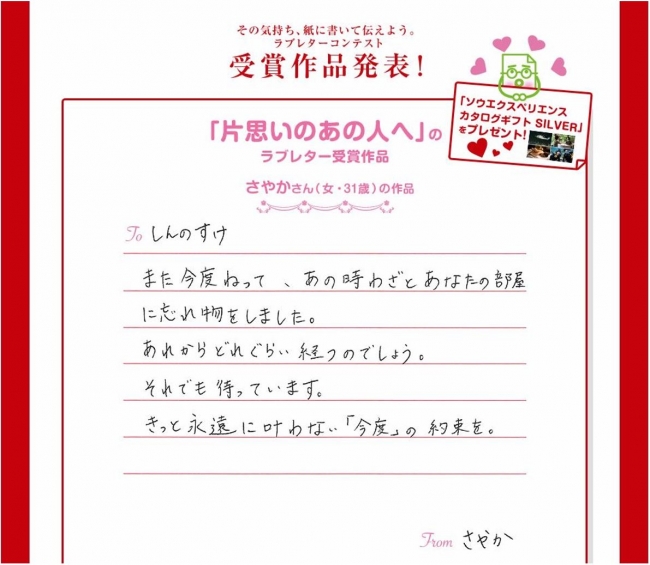 その気持ち、紙に書いて伝えよう。
ラブレターコンテスト
受賞作品発表！
「ソウエクスペリエンス
カタログギフト SILVER」
をプレゼント！
「片思いのあの人へ」の
ラブレター受賞作品
さやかさん（女・31歳）の作品
To しんのすけ
また今度ねって、あの時わざとあなたの部屋
に忘れ物をしました。
あれからどれぐらい経つのでしょう。
それでも待っています。
きっと永遠に叶わない「今度」の約束を。
From さやか